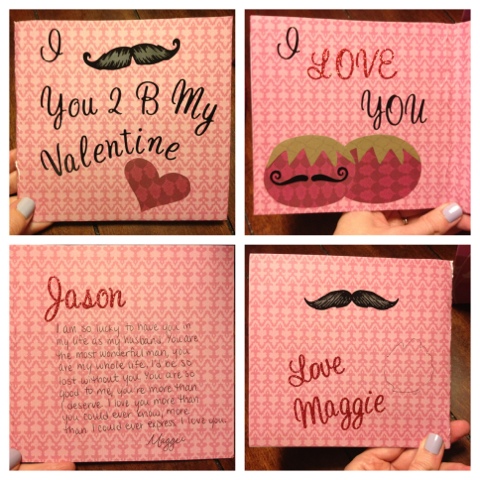 I
You 2 B My
Valentine
I
LOVE
YOU
Jason
I am so lucky to have you in
my life as my husband. You are
the most wonderful man, you
are my whole life, I'd be so
lost without you. You are so
good to me, you're more than
I deserve. I love you more than
you could ever know, more
than I could ever express. I love you.
Maggie
Love
Maggie